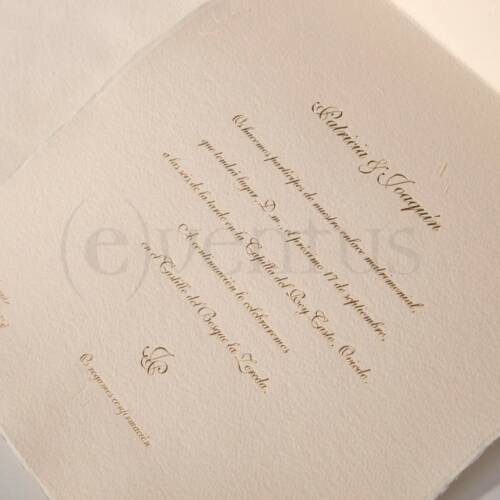 Patricia & Joaquín
Os hacemos partícipes de nuestro enlace matrimonial,
que tendrá lugar, D.m., el próximo 17 de septiembre,
a las seis de la tarde en la Capilla del Rey Casto, Oviedo.
A continuación lo celebraremos
en el Castillo del Bosque la Zoreda.
Os rogamos confirmación
(e)ventus